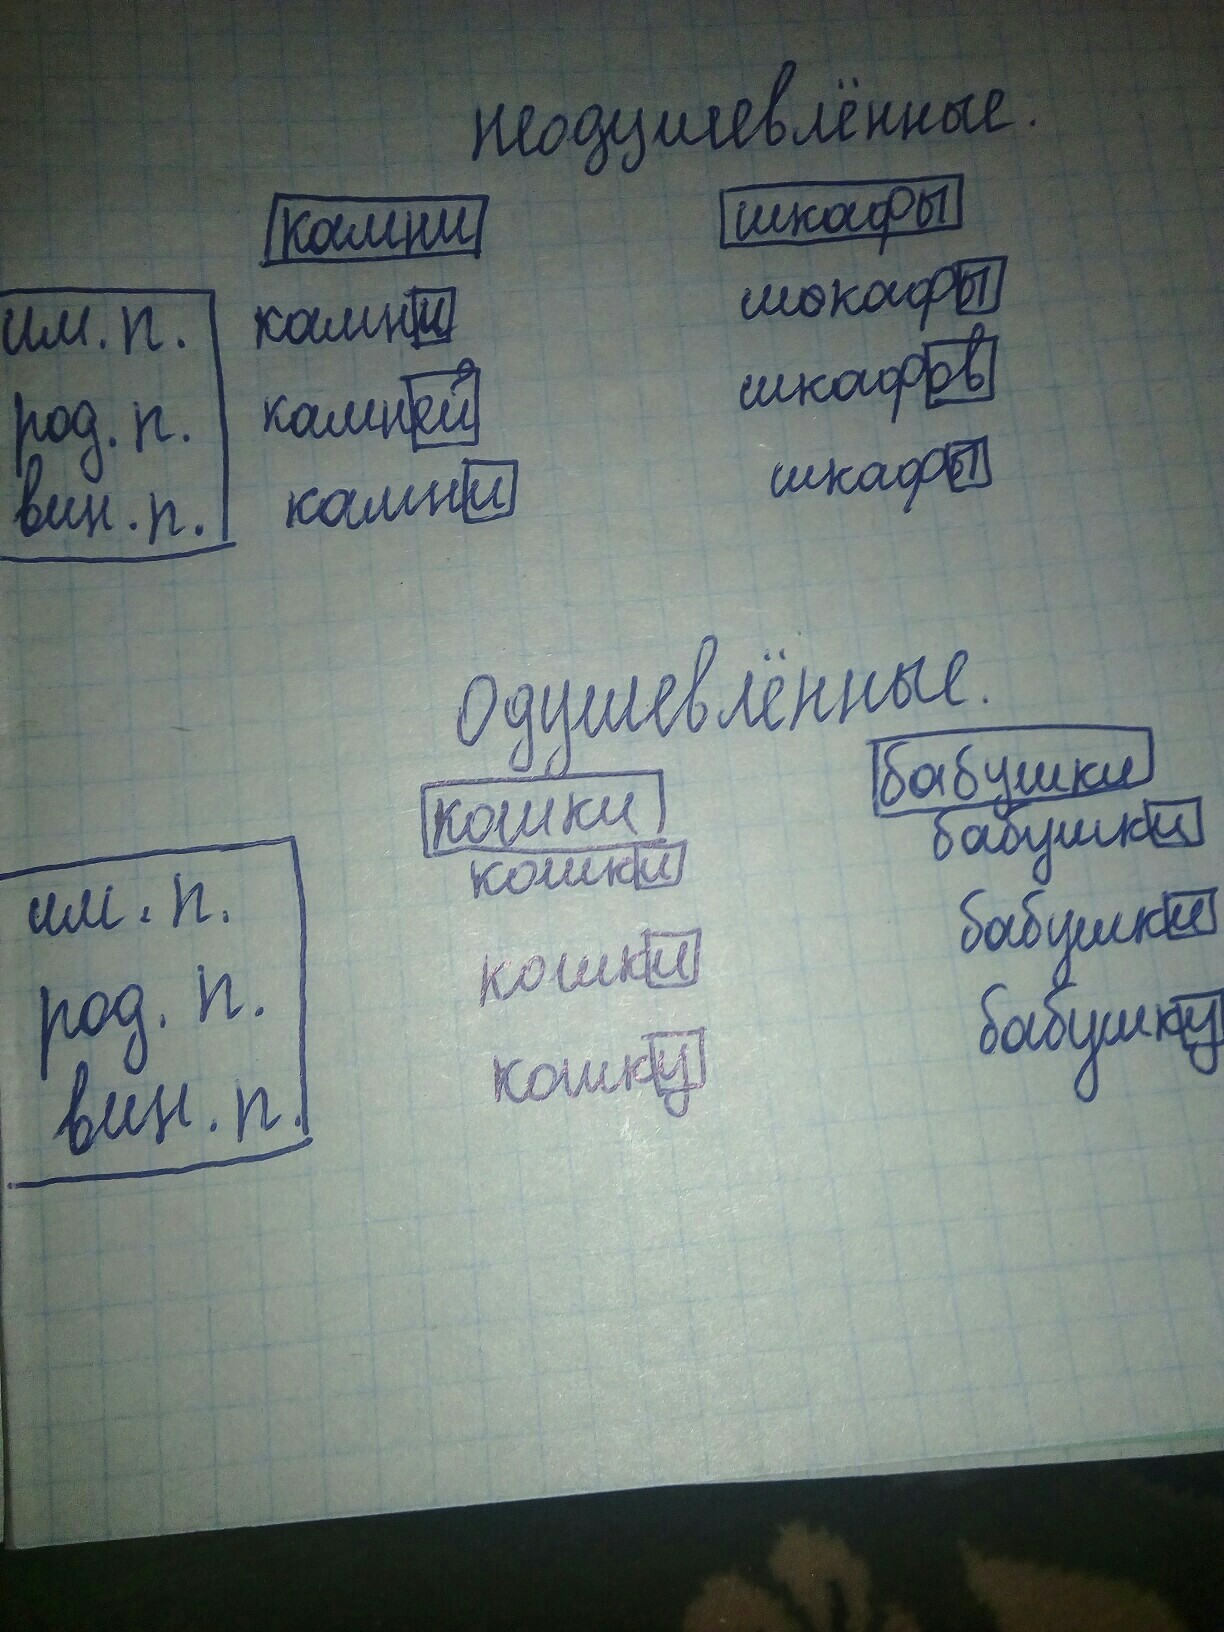 Неодушевлённые.
камни шкафы
им. п. камни шокафы
род. п. камней шкафов
вин. п. камни шкафы
Одушевлённые.
кошки бабушки
им. п. кошки бабушки
род. п. кошки бабушки
вин. п. кошку бабушку